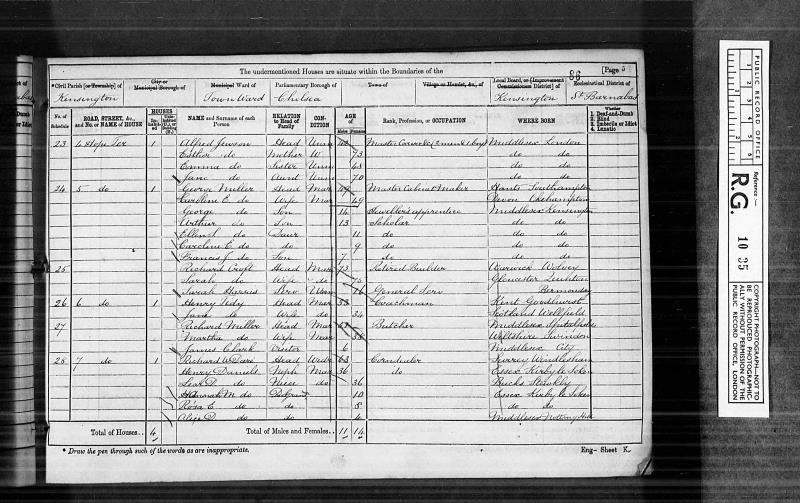 The undermentioned Houses are situate within the Boundaries of the
86 [Page 5
*Civil Parish [or Township] of
City or Municipal Borough of
Municipal Ward of
Parliamentary Borough of
Town of
Village or Hamlet, &c., of
Local Board, or [Improvement Commissioners District] of
Ecclesiastical District of
Kensington Town Ward Chelsea Kensington St Barnabas
No. of Schedule
ROAD, STREET, &c., and No. or NAME of HOUSE
HOUSES
Inhabited
Uninhabited (U.), or Building (B.)
NAME and Surname of each Person
RELATION to Head of Family
CONDITION
AGE
Males Females
Rank, Profession, or OCCUPATION
WHERE BORN
Whether
1. Deaf-and-Dumb
2. Blind
3. Imbecile or Idiot
4. Lunatic
23 4 Hope Ter 1 Alfred Head Unm Middlesex London
Esther do Mother W 73 do do
Emma do Sister Unm 45 do do
Jane do Aunt Unm 70 do do
24 5 do 1 George Miller Head Mar 49 Master Cabinet Maker Hants Southampton
Caroline E. do Wife Mar 49 Devon Okehampton
George do Son 14 Jeweller's apprentice Middlesex Kensington
Arthur do Son 13 Scholar do do
Ellen do Daur 11 do do do
Caroline E. do do 9 do do do
Francis J. do Son 7 do do do
25 Richard Croft Head Mar 73 Retired Builder Warwick Wolvey
Sarah do Wife do 75 Gloucester
Sarah Harris Serv Unm 16 General Serv Bermondsey
26 6 do 1 Henry Head Mar 38 Coachman Kent Goudhurst
Jane do Wife do 34 Scotland
27 Richard Miller Head Mar Butcher Middlesex Spitalfields
Martha do Wife Mar 58 Wiltshire Swindon
James Clark Visitor 6 Middlesex City
28 7 do 1 Richard W Head Widr 63 Corndealer Surrey Windlesham
Henry Daniels Neph Mar 36 do Essex Kirby le Soken
D. do Niece do 36 Bucks
Hannah M. do 10 Essex Kirby le Soken
Rosa E. do do 8 do do
Alice D. do do 6 Middlesex Notting Hill
Total of Houses.. 4
Total of Males and Females.. 11 14
* Draw the pen through such of the words as are inappropriate.
Eng— Sheet K.
PUBLIC RECORD OFFICE
1 2 3 4 5 6
Reference:—
R.G. 10 35
COPYRIGHT PHOTOGRAPH—NOT TO BE REPRODUCED PHOTOGRAPHICALLY WITHOUT PERMISSION OF THE PUBLIC RECORD OFFICE, LONDON